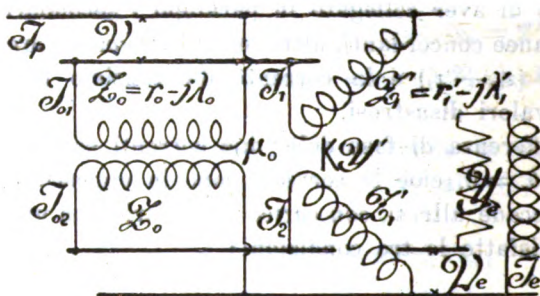 𝒥p 𝒱
𝒥o1 𝒵o = ro - jλo 𝒥1 𝒵1 = r1 - jλ1
μo K𝒱
𝒥o2 𝒵o 𝒥2 𝒵1
𝒱e 𝒥e